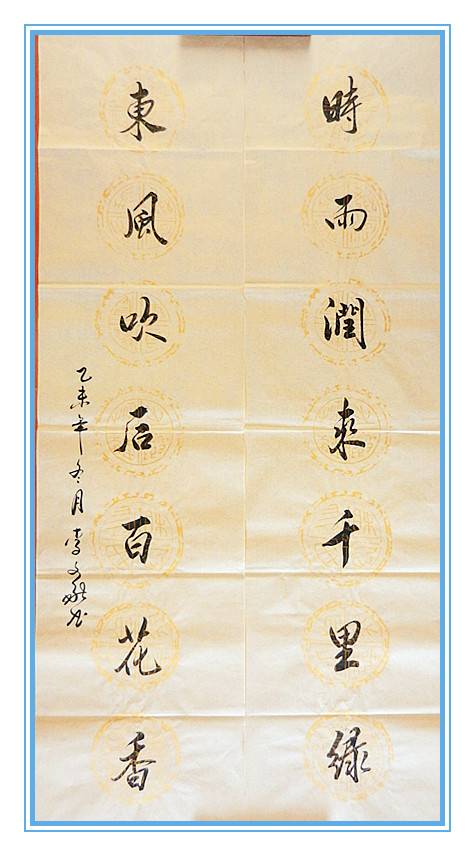 時雨潤來千里綠
東風吹后百花香
乙未年冬月李文